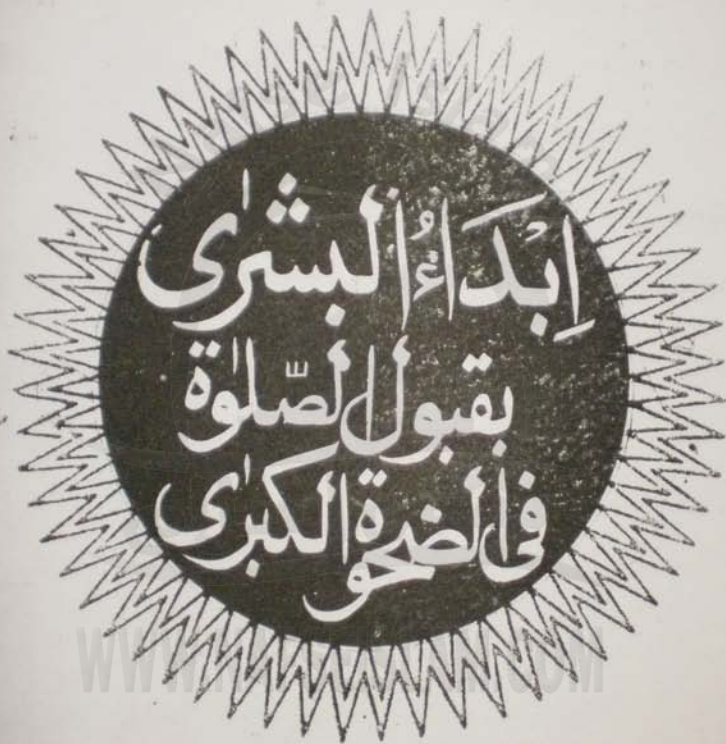 اِبْدَاءُ البشرٰى
بقبول الصّلوٰة
فى الضحوة الكبرٰى